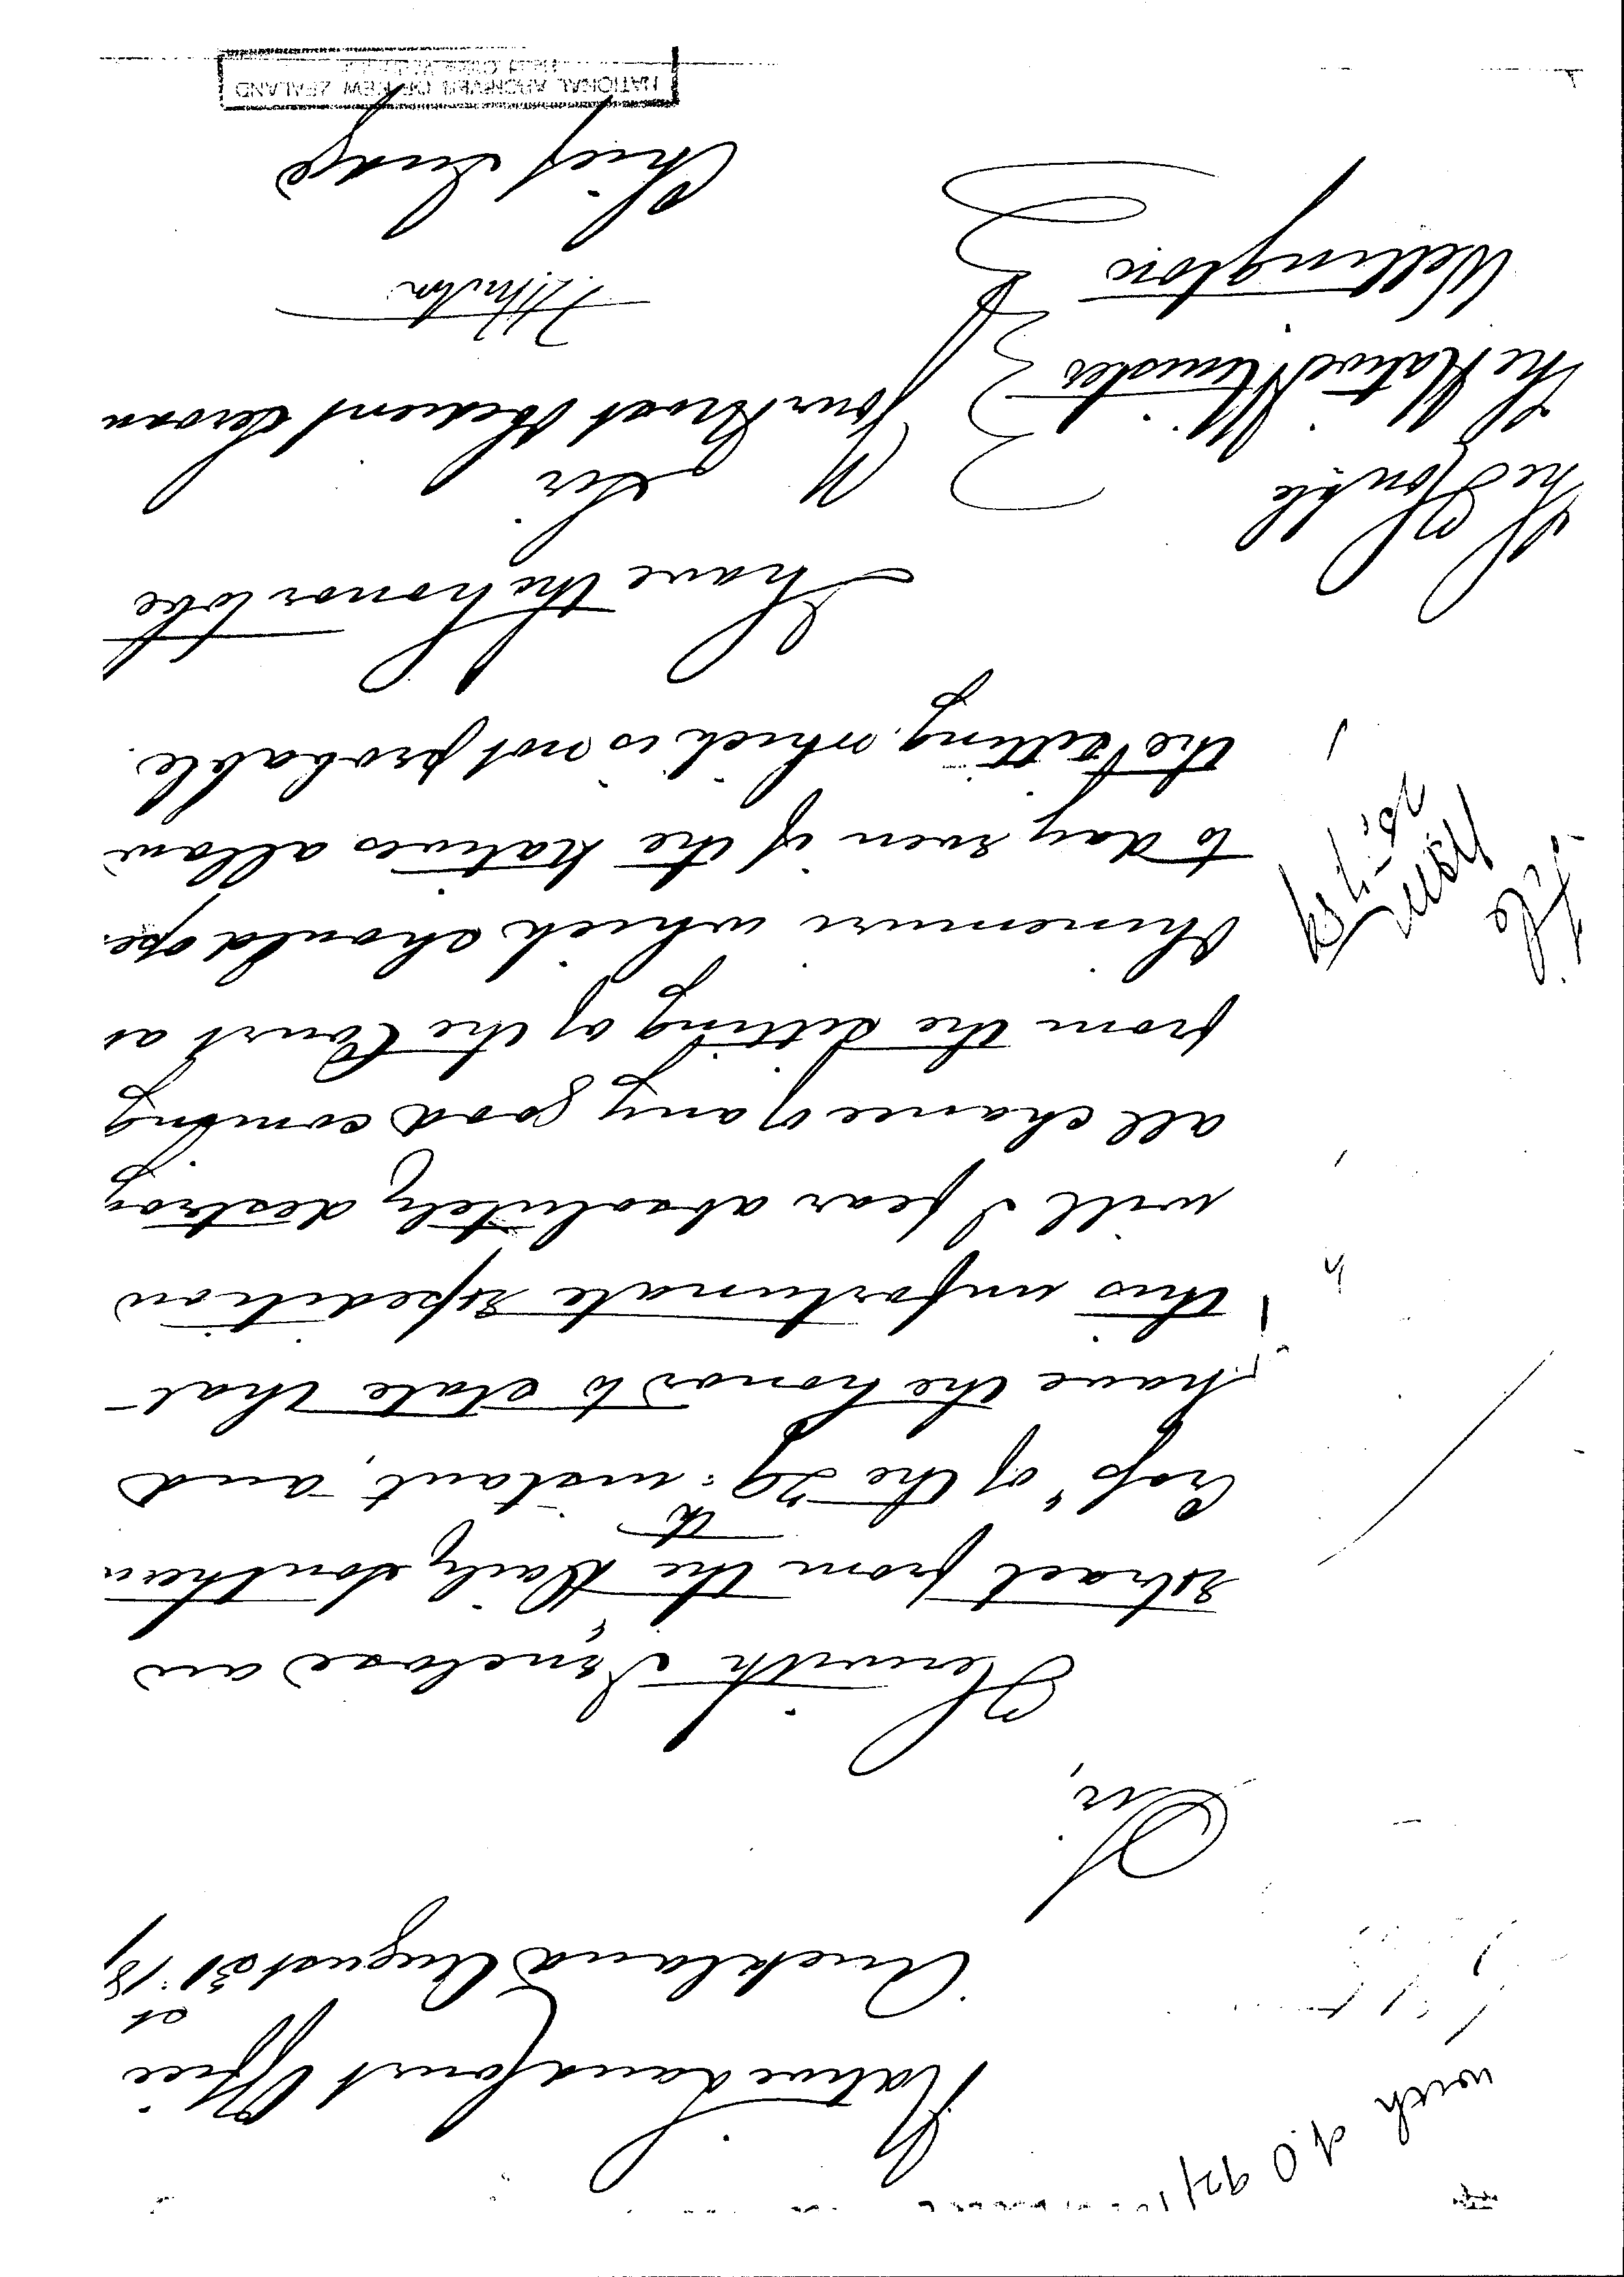 with 90 92/
Native Land Court Office
Auckland August 31st 18
Sir,
Herewith I enclose an
extract from the "Daily Southern
Cross" of the 29th instant, and
have the honor to state that
this unfortunate expedition
will I fear absolutely destroy
all chance of any good coming
from the sitting of the Court at
Ohinemuri which should ope
to day even if the Natives allow
the sitting, which is not probable.
I have the honor to be
Sir
Your Most Obedient Servan
Chief Judge
The Honble
The Native Minister
Wellington
File
NATIONAL ARCHIVES OF NEW ZEALAND